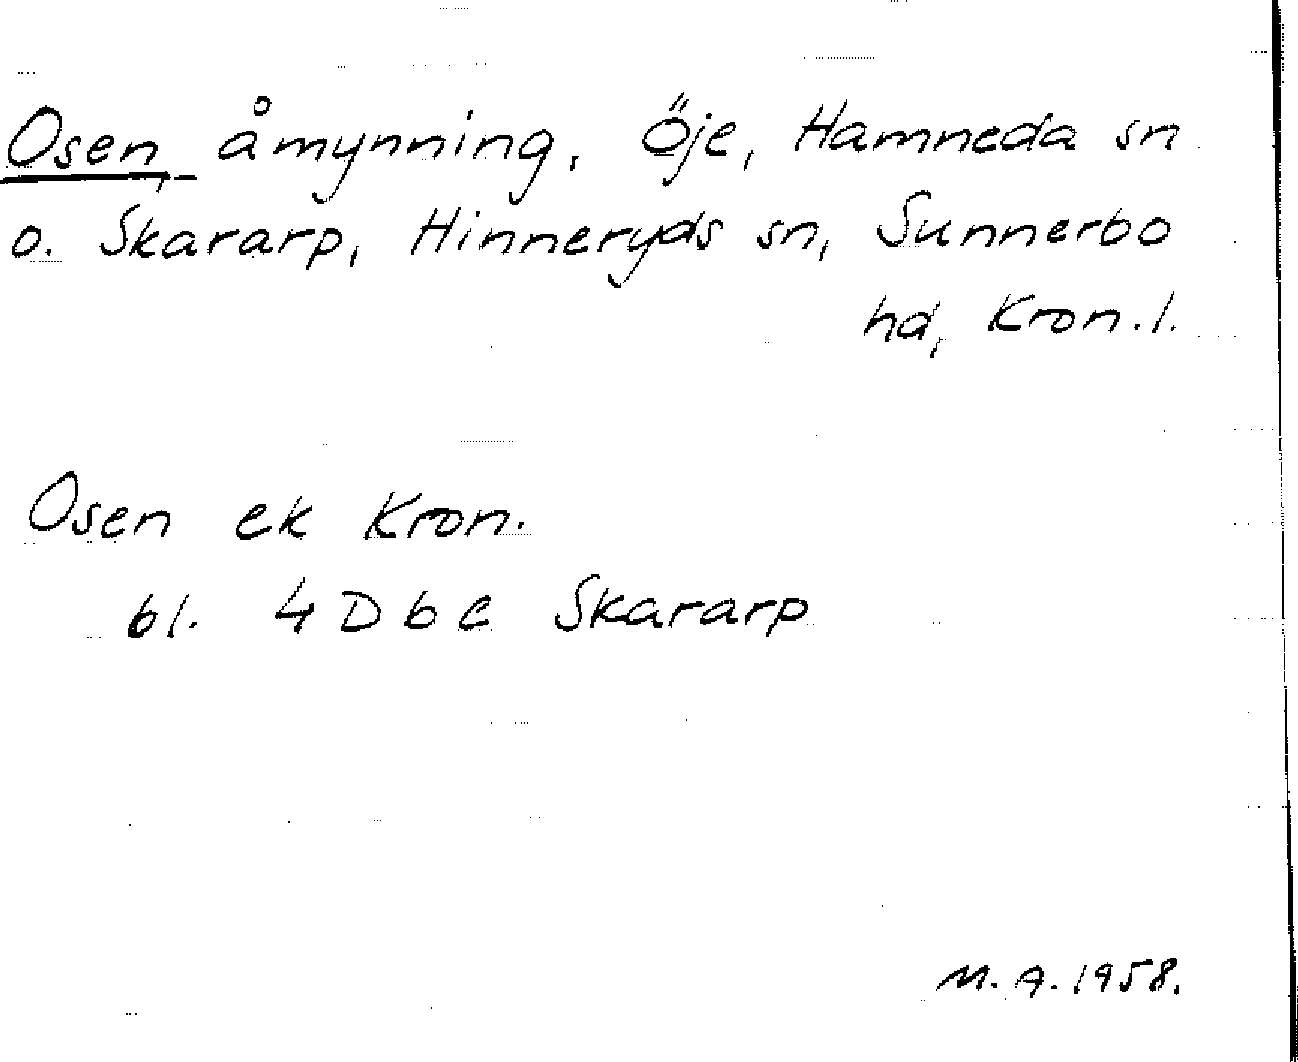 Osen, åmynning, Öje, Hamneda sn
o. Skararp, Hinneryds sn, Sunnerbo
hd, Kron.l.
Osen ek Kron.
bl. 4 D b c Skararp
M.A. 1958.